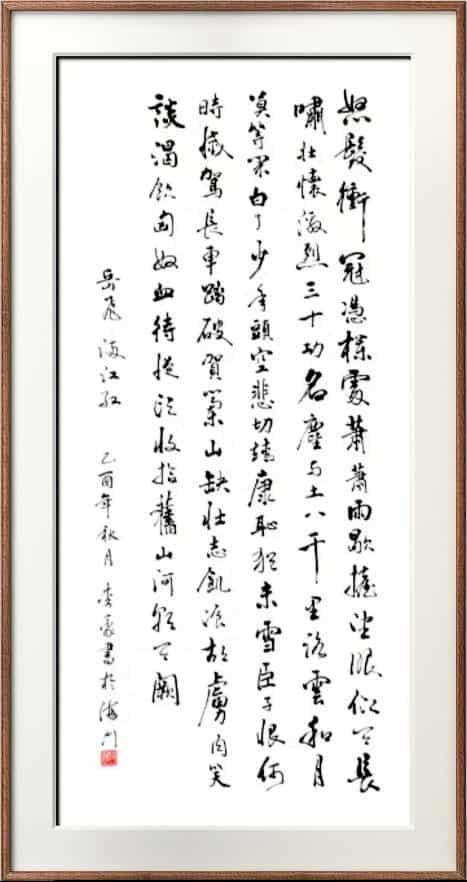 怒髮衝冠憑欄處蕭蕭雨歇擡望眼仰天長
嘯壯懷激烈三十功名塵与土八千里路雲和月
莫等閑白了少年頭空悲切靖康恥猶未雪臣子恨何
時滅駕長車踏破賀蘭山缺壯志飢飡胡虜肉笑
談渴飲匈奴血待從頭收拾舊山河朝天闕
岳飛滿江紅 乙酉年秋月 李豪書於海門